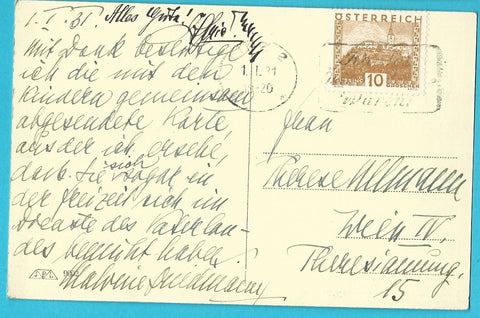 1. I. 31. Alles Gute!
Mit Dank bestätige
ich die mit den
Kindern gemeinsam
abgesendete Karte,
aus der ich ersehe,
dass Sie sich sogar in
der Freizeit sich im
Dienste des Vaterlan-
des bemüht haben.
Malvine Friedmann
ÖSTERREICH
10 GROSCHEN
1. I. 31
Frau
Therese Ullmann
Wien IV.
Theresianumg.
15